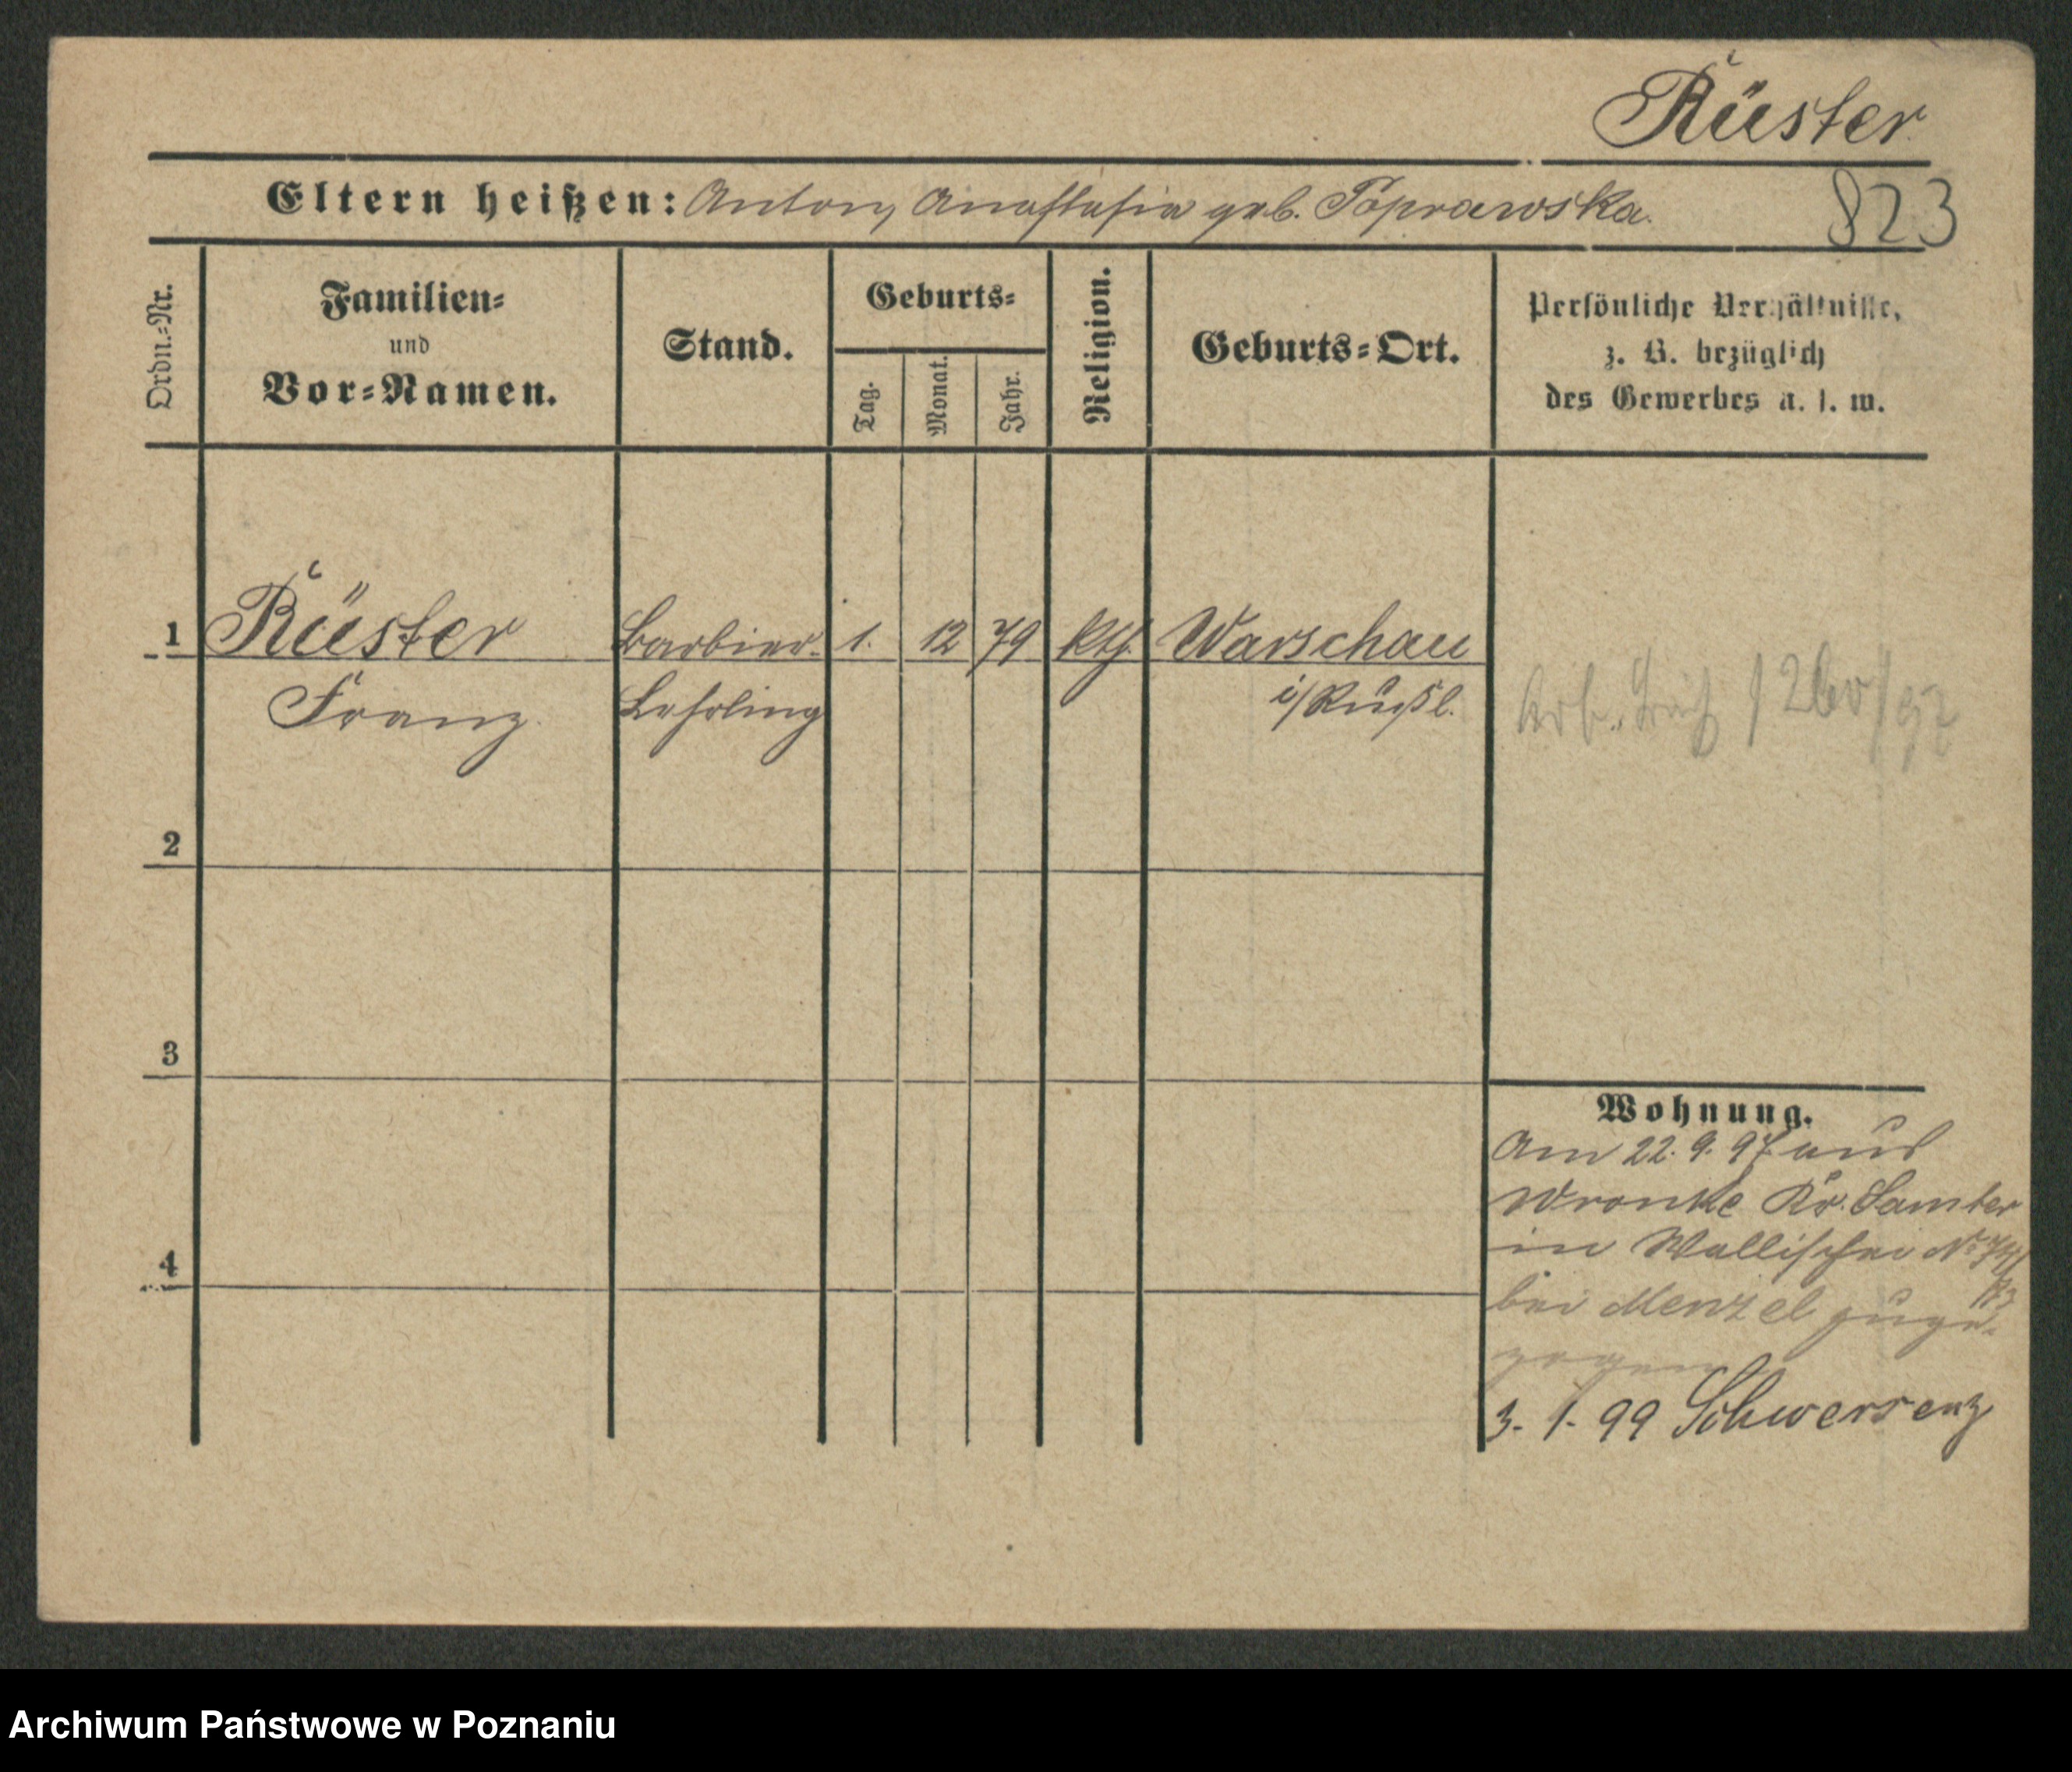 Rüster
Eltern heißen: Anton, Anastasia geb. Poprawska.
823
Ordn.=Nr.
Familien=
und
Vor=Namen.
Stand.
Geburts=
Tag.
Monat.
Jahr.
Religion.
Geburts=Ort.
Persönliche Verhältnisse,
z. B. bezüglich
des Gewerbes u. s. w.
1 Rüster Barbier- 1. 12 79 kth. Warschau
Franz Lehrling i/Rußl.
Arb. /92
2
3
4
Wohnung.
Am 22. 9. 97 aus
Wronke Kr. Samter
in Wallischei No 74/
bei Menzel zuge-
zogen
3. 1. 99 Schwersenz
Archiwum Państwowe w Poznaniu